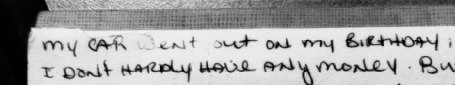 my CAR Went out on my BIRTHDAY;
I DON't HARDLY HAVE ANY money. Bu